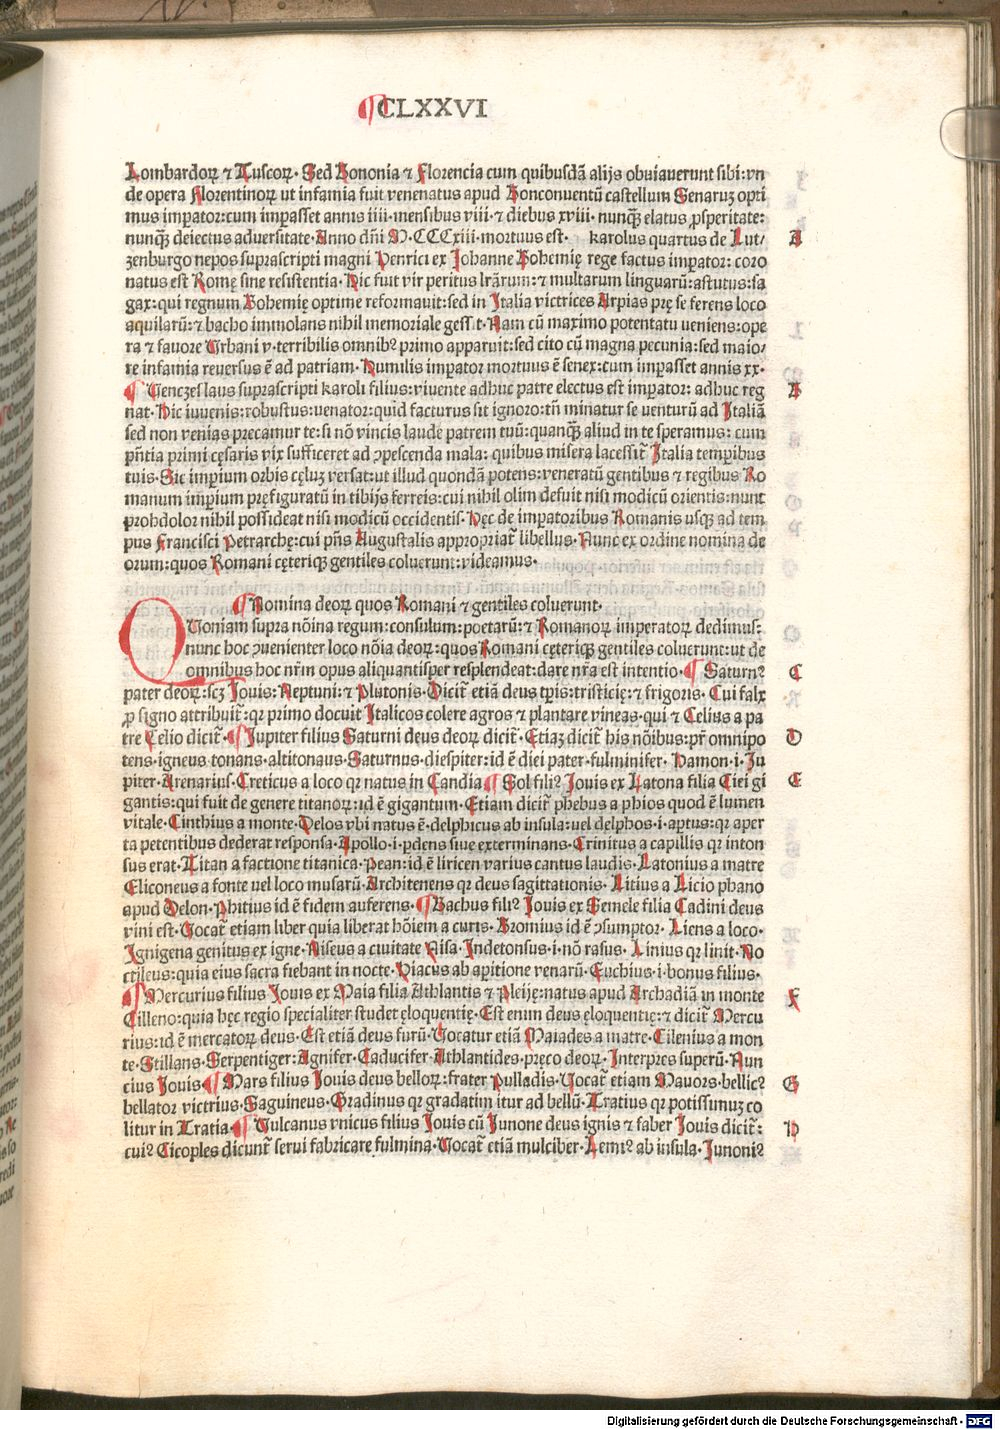 ¶CLXXVI
Lombardoꝝ ⁊ Tuscoꝝ. Sed Bononia ⁊ Florencia cum quibusdã alijs obuiauerunt sibi: vn
de opera Florentinoꝝ ut infamia fuit venenatus apud Bonconuentũ castellum Senaruꝫ opti
mus imꝑator: cum imꝑasset annis iiii. mensibus viii. ⁊ diebus xviii. nunꝙ̃ elatus ꝓsperitate:
nunꝙ̃ deiectus aduersitate. Anno dñi M.CCCxiii. mortuus est. karolus quartus de Lut/
A
zenburgo nepos suprascripti magni Henrici ex Johanne Bohemię rege factus imꝑator: coro
natus est Romę sine resistentia. Hic fuit vir peritus lr̃arum: ⁊ multarum linguarũ: astutus: sa
gax: qui regnum Bohemię optime reformauit: sed in Italia victrices Arpias prę se ferens loco
aquilarũ: ⁊ bacho immolans nihil memoriale gess t. Nam cũ maximo potentatu ueniens: ope
ra ⁊ fauore Urbani v. terribilis omnibꝰ primo apparuit: sed cito cũ magna pecunia: sed maio/
re infamia reuersus ẽ ad patriam. Humilis imꝑator mortuus ẽ senex: cum imꝑasset annis xx.
¶ Venczeslaus suprascripti karoli filius: viuente adhuc patre electus est imꝑator: adhuc reg
A
nat. Hic iuuenis: robustus: uenator: quid facturus sit ignoro: tñ minatur se uenturũ ad Italiã
sed non venias precamur te: si nõ vincis laude patrem tuũ: quanꝙ̃ aliud in te speramus: cum
pñtia primi cęsaris vix sufficeret ad ꝯpescenda mala: quibus misera lacessit᷑ Italia temꝑibus
tuis. Sic imꝑium orbis cęluꝫ versat: ut illud quondã potens: veneratũ gentibus ⁊ regibus Ro
manum imꝑium pręfiguratũ in tibijs ferreis: cui nihil olim defuit nisi modicũ orientis: nunc
prohdolor nihil possideat nisi modicũ occidentis. Hęc de imꝑatoribus Romanis usqꝫ ad tem
pus Francisci Petrarchę: cui pñs Augustalis appropriat᷑ libellus. Nunc ex ordine nomina de
orum: quos Romani cęteriqꝫ gentiles coluerunt: videamus.
¶ Nomina deoꝝ quos Romani ⁊ gentiles coluerunt.
QUoniam supra nõina regum: consulum: poetarũ: ⁊ Romanoꝝ imperatoꝝ dedimus:
nunc hoc ꝯuenienter loco nõia deoꝝ: quos Romani cęteriqꝫ gentiles coluerunt: ut de
omnibus hoc nr̃m opus aliquantisper resplendeat: dare nr̃a est intentio. ¶ Saturnꝰ
C
pater deoꝝ: scꝫ Jouis: Neptuni: ⁊ Plutonis. Dicit᷑ etiã deus tꝑis: tristicię: ⁊ frigoris. Cui falx
ꝓ signo attribuit᷑: qꝛ primo docuit Italicos colere agros ⁊ plantare vineas. qui ⁊ Celius a pa
tre Celio dicit᷑. ¶ Jupiter filius Saturni deus deoꝝ dicit᷑. Etiaꝫ dicit᷑ his nõibus: pr̃ omnipo
D
tens. igneus tonans. altitonaus. Saturnus. diespiter: id ẽ diei pater. fulminifer. Hamon. i. Ju
piter. Arenarius. Creticus a loco qꝛ natus in Candia ¶ Sol filiꝰ Jouis ex Latona filia Ciei gi
E
gantis: qui fuit de genere titanoꝝ: id ẽ gigantum. Etiam dicit᷑ phebus a phios quod ẽ lumen
vitale. Cinthius a monte. Delos vbi natus ẽ. delphicus ab insula: uel delphos. i. aꝑtus: qꝛ aper
ta petentibus dederat responsa. Apollo. i. ꝑdens siue exterminans. Crinitus a capillis qꝛ inton
sus erat. Titan a factione titanica. Pean: id ẽ liricen varius cantus laudis. Latonius a matre
Eliconeus a fonte uel loco musarũ. Architenens qꝛ deus sagittationis. Litius a Licio phano
apud Delon. Phitius id ẽ fidem auferens. ¶ Bachus filiꝰ Jouis ex Semele filia Cadini deus
vini est. Vocat᷑ etiam liber quia liberat hõiem a curis. Bromius id ẽ ꝯsumptor. Liens a loco.
Ignigena genitus ex igne. Niseus a ciuitate Nisa. Indetonsus. i. nõ rasus. Linius qꝛ linit. No
ctileus: quia eius sacra fiebant in nocte. Hiacus ab aꝑitione venarũ. Euchius. i. bonus filius.
¶ Mercurius filius Jouis ex Maia filia Athlantis ⁊ Pleiję: natus apud Archadiã in monte
F
Cilleno: quia hęc regio specialiter studet ęloquentię. Est enim deus ęloquentię: ⁊ dicit᷑ Mercu
rius: id ẽ mercatoꝝ deus. Est etiã deus furũ. Vocatur etiã Maiades a matre. Cilenius a mon
te. Stillans. Serpentiger: Agnifer. Caducifer. Athlantides. pręco deoꝝ. Interpres superũ. Nun
cius Jouis ¶ Mars filius Jouis deus belloꝝ: frater Pulladis. Vocat᷑ etiam Mauors. bellicꝰ
G
bellator victrius. Saguineus. Gradinus qꝛ gradatim itur ad bellũ. Tratius qꝛ potissimuꝫ co
litur in Tratia. ¶ Vulcanus vnicus filius Jouis cũ Junone deus ignis ⁊ faber Jouis dicit᷑:
H
cuiꝰ Cicoples dicunt᷑ serui fabricare fulmina. Vocat᷑ etiã mulciber. Lemiꝰ ab insula. Junoniꝰ
Digitalisierung gefördert durch die Deutsche Forschungsgemeinschaft - DFG